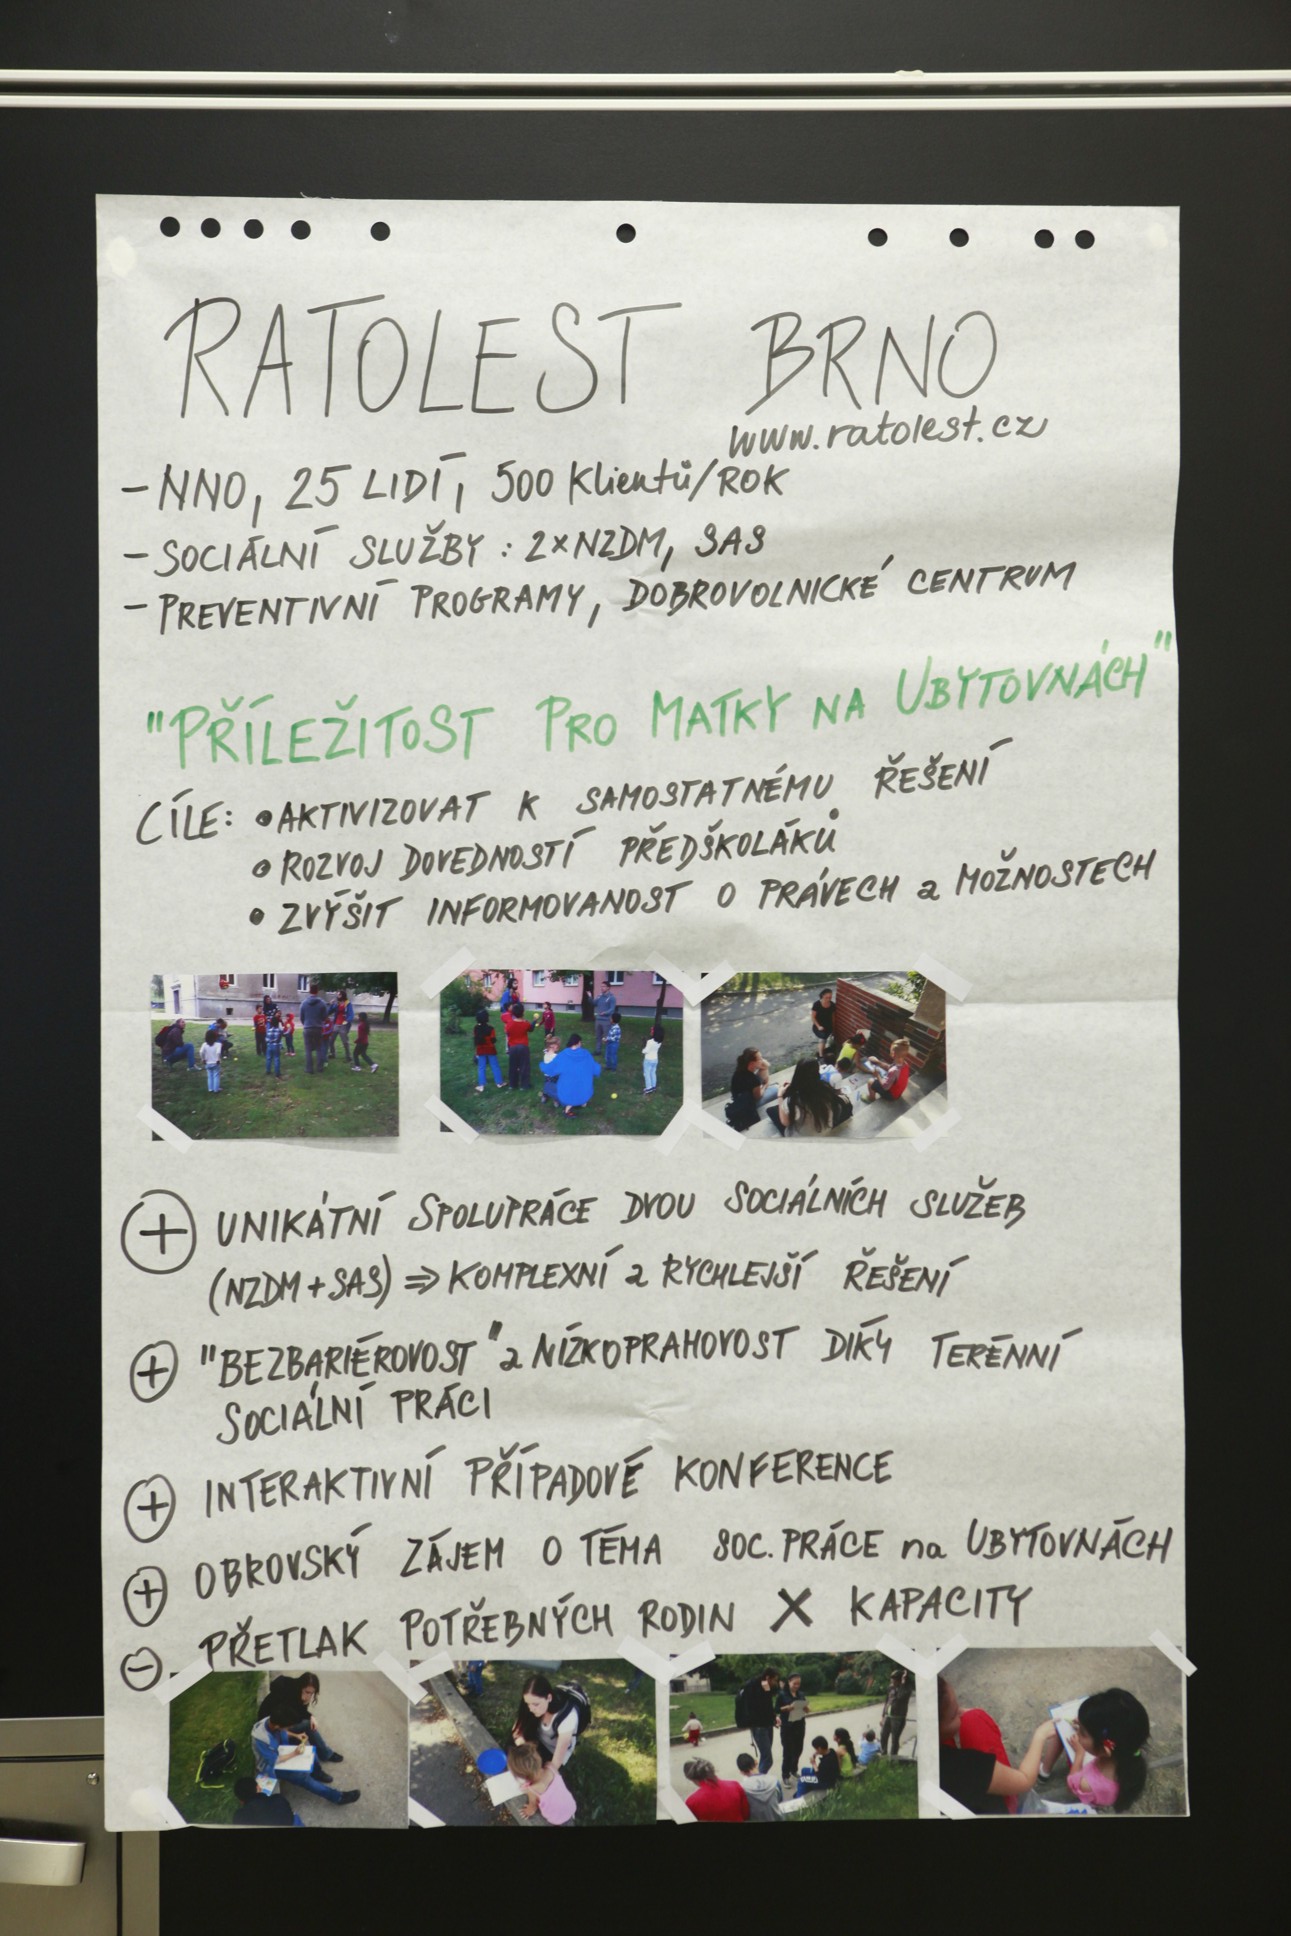 RATOLEST BRNO
www.ratolest.cz
- NNO, 25 LIDÍ, 500 klientů/ROK
- SOCIÁLNÍ SLUŽBY : 2×NZDM, SAS
- PREVENTIVNÍ PROGRAMY, DOBROVOLNICKÉ CENTRUM
"PŘÍLEŽITOST PRO MATKY NA UBYTOVNÁCH"
CÍLE: • AKTIVIZOVAT K SAMOSTATNÉMU ŘEŠENÍ
• ROZVOJ DOVEDNOSTÍ PŘEDŠKOLÁKŮ
• ZVÝŠIT INFORMOVANOST O PRÁVECH a MOŽNOSTECH
⊕ UNIKÁTNÍ SPOLUPRÁCE DVOU SOCIÁLNÍCH SLUŽEB
(NZDM + SAS) ⇒ KOMPLEXNÍ a RYCHLEJŠÍ ŘEŠENÍ
⊕ "BEZBARIÉROVOST" a NÍZKOPRAHOVOST DÍKY TERÉNNÍ
SOCIÁLNÍ PRÁCI
⊕ INTERAKTIVNÍ PŘÍPADOVÉ KONFERENCE
⊕ OBROVSKÝ ZÁJEM O TÉMA SOC. PRÁCE na UBYTOVNÁCH
⊖ PŘETLAK POTŘEBNÝCH RODIN X KAPACITY